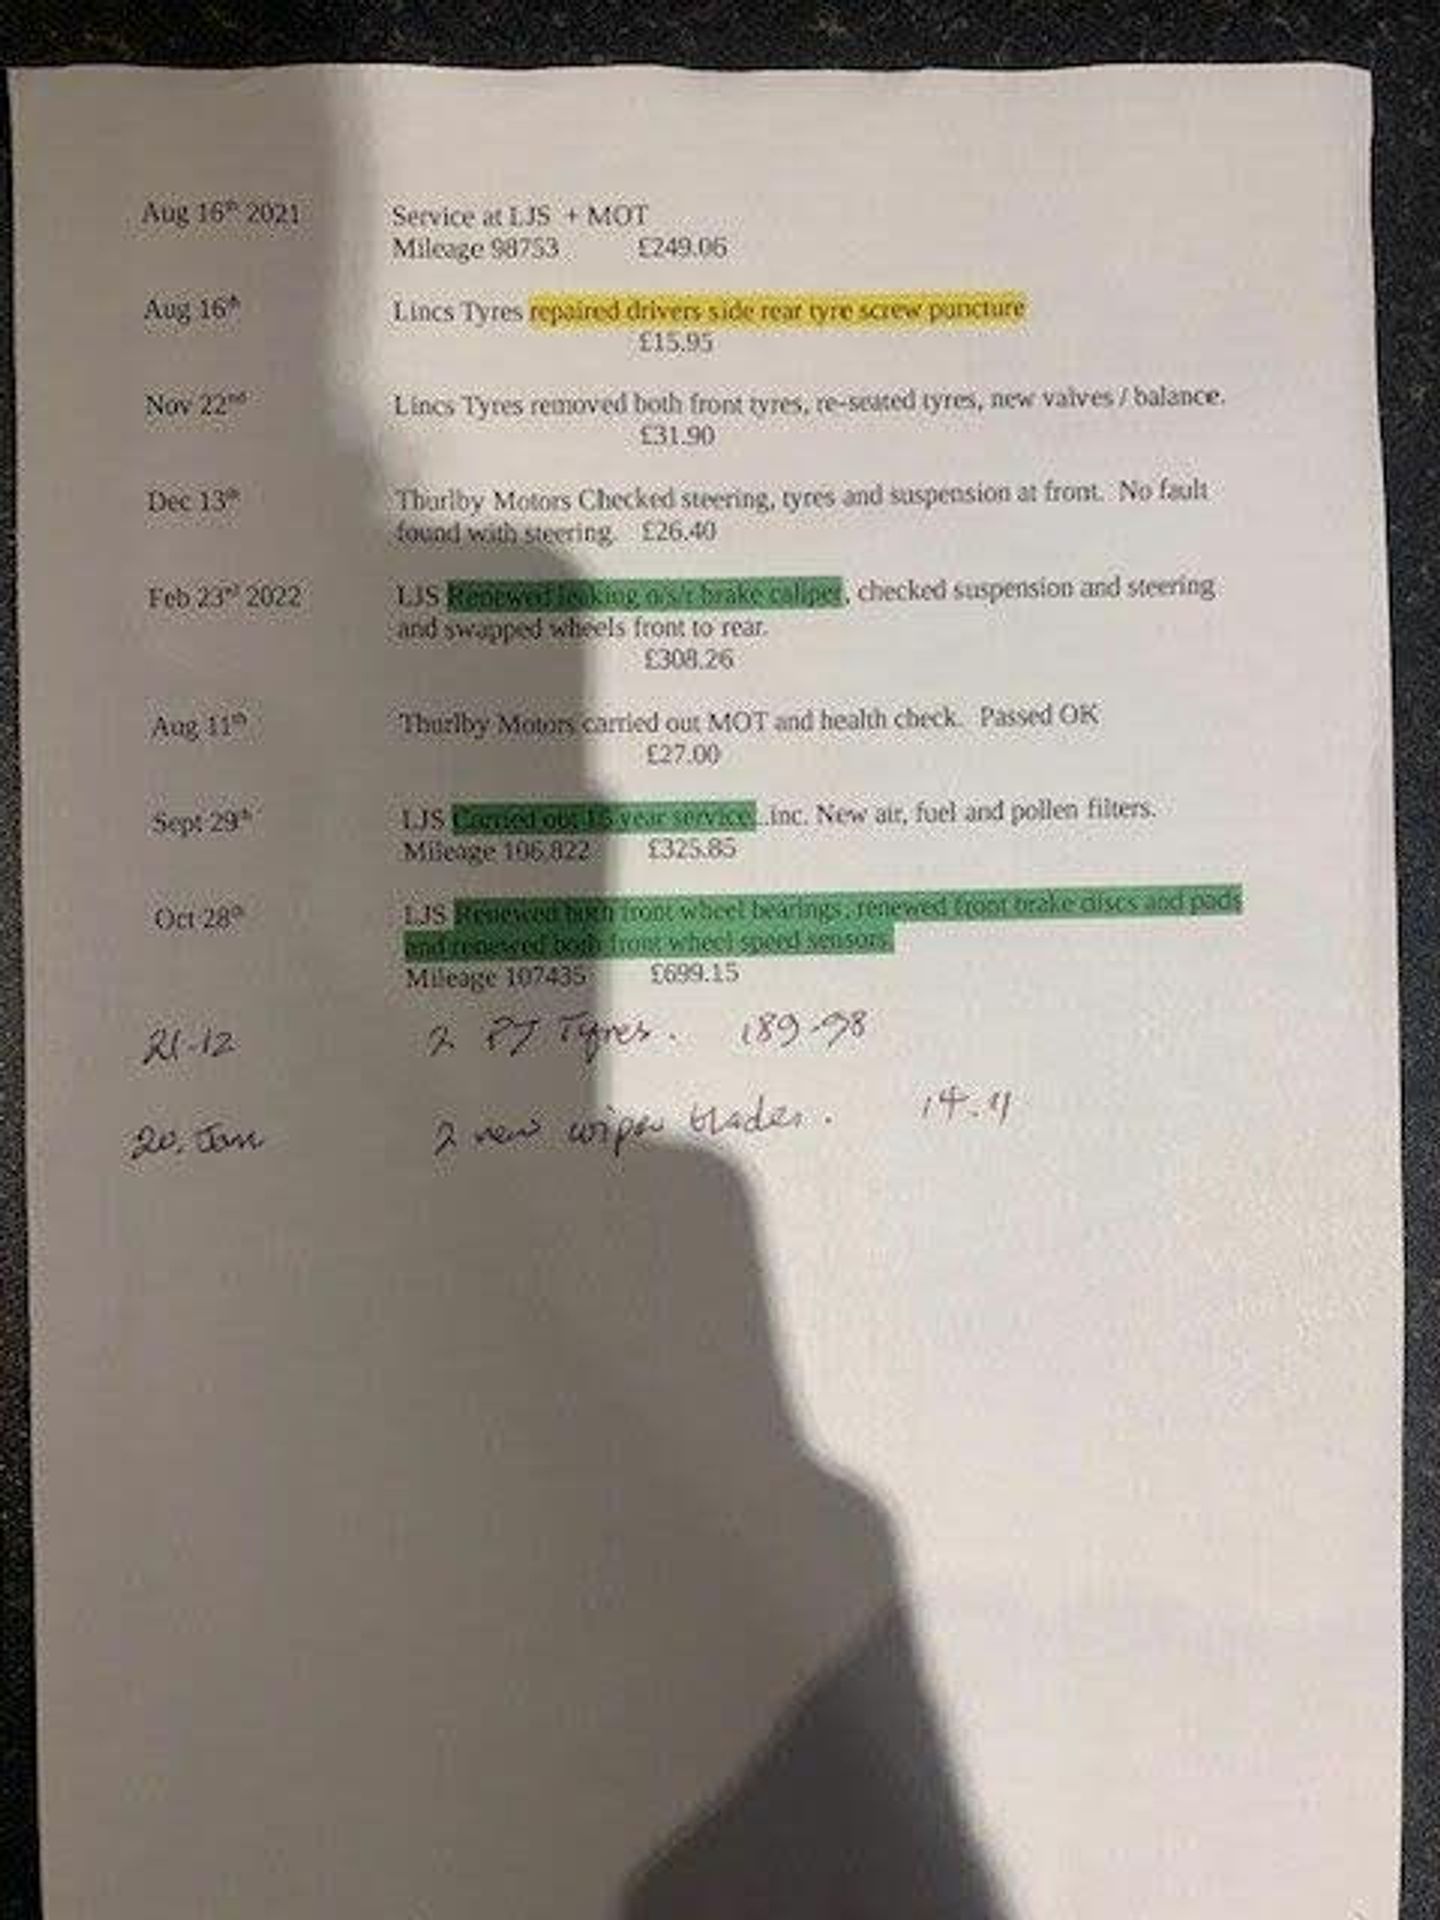 Aug 16th 2021 Service at LJS + MOT
Mileage 98753 £249.06
Aug 16th Lincs Tyres repaired drivers side rear tyre screw puncture
£15.95
Nov 22nd Lincs Tyres removed both front tyres, re-seated tyres, new valves / balance.
£31.90
Dec 13th Thurlby Motors Checked steering, tyres and suspension at front. No fault
found with steering. £26.40
Feb 23rd 2022 LJS Renewed leaking o/s/r brake caliper, checked suspension and steering
and swapped wheels front to rear.
£308.26
Aug 11th Thurlby Motors carried out MOT and health check. Passed OK
£27.00
Sept 29th LJS Carried out year service...inc. New air, fuel and pollen filters.
Mileage 106,822 £325.85
Oct 28th LJS Renewed both front wheel bearings, renewed front brake discs and pads
and renewed both front wheel speed sensors.
Mileage 107435 £699.15
21-12 2 Tyres. 189-98
20. Jan 2 new wiper blades.